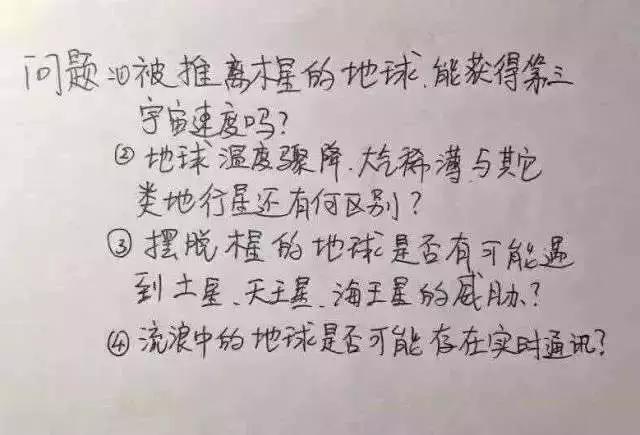 问题 ①被推离木星的地球.能获得第三
宇宙速度吗?
② 地球温度骤降.大气稀薄与其它
类地行星还有何区别?
③ 摆脱木星的地球是否有可能遇
到土星、天王星、海王星的威胁?
④ 流浪中的地球是否可能存在实时通讯?